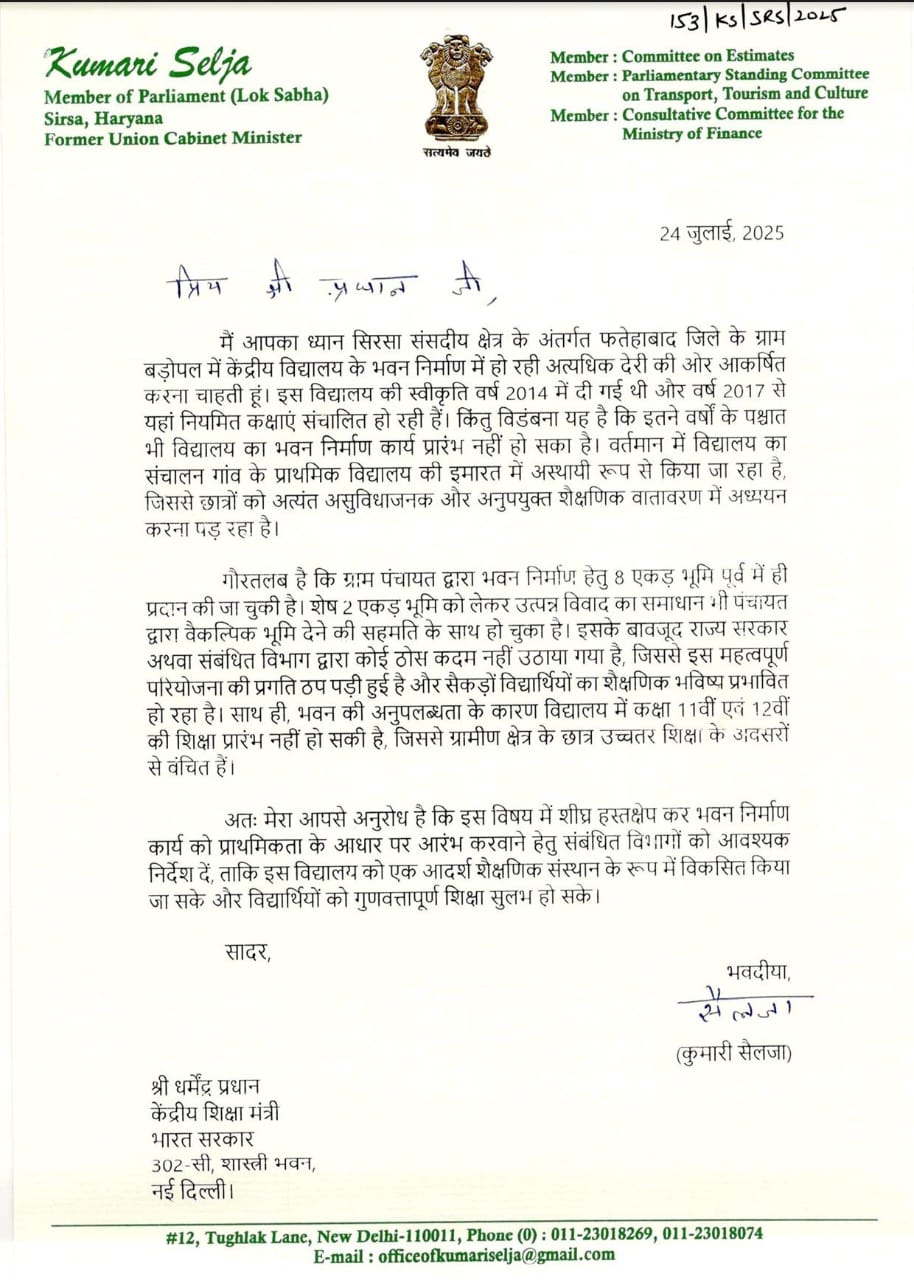 153/KS/SRS/2025
Kumari Selja
Member of Parliament (Lok Sabha)
Sirsa, Haryana
Former Union Cabinet Minister
सत्यमेव जयते
Member : Committee on Estimates
Member : Parliamentary Standing Committee
on Transport, Tourism and Culture
Member : Consultative Committee for the
Ministry of Finance
24 जुलाई, 2025
प्रिय श्री प्रधान जी,
मैं आपका ध्यान सिरसा संसदीय क्षेत्र के अंतर्गत फतेहाबाद जिले के ग्राम
बड़ोपल में केंद्रीय विद्यालय के भवन निर्माण में हो रही अत्यधिक देरी की ओर आकर्षित
करना चाहती हूं। इस विद्यालय की स्वीकृति वर्ष 2014 में दी गई थी और वर्ष 2017 से
यहां नियमित कक्षाएं संचालित हो रही हैं। किंतु विडंबना यह है कि इतने वर्षों के पश्चात
भी विद्यालय का भवन निर्माण कार्य प्रारंभ नहीं हो सका है। वर्तमान में विद्यालय का
संचालन गांव के प्राथमिक विद्यालय की इमारत में अस्थायी रूप से किया जा रहा है,
जिससे छात्रों को अत्यंत असुविधाजनक और अनुपयुक्त शैक्षणिक वातावरण में अध्ययन
करना पड़ रहा है।
गौरतलब है कि ग्राम पंचायत द्वारा भवन निर्माण हेतु 8 एकड़ भूमि पूर्व में ही
प्रदान की जा चुकी है। शेष 2 एकड़ भूमि को लेकर उत्पन्न विवाद का समाधान भी पंचायत
द्वारा वैकल्पिक भूमि देने की सहमति के साथ हो चुका है। इसके बावजूद राज्य सरकार
अथवा संबंधित विभाग द्वारा कोई ठोस कदम नहीं उठाया गया है, जिससे इस महत्वपूर्ण
परियोजना की प्रगति ठप पड़ी हुई है और सैकड़ों विद्यार्थियों का शैक्षणिक भविष्य प्रभावित
हो रहा है। साथ ही, भवन की अनुपलब्धता के कारण विद्यालय में कक्षा 11वीं एवं 12वीं
की शिक्षा प्रारंभ नहीं हो सकी है, जिससे ग्रामीण क्षेत्र के छात्र उच्चतर शिक्षा के अवसरों
से वंचित हैं।
अतः मेरा आपसे अनुरोध है कि इस विषय में शीघ्र हस्तक्षेप कर भवन निर्माण
कार्य को प्राथमिकता के आधार पर आरंभ करवाने हेतु संबंधित विभागों को आवश्यक
निर्देश दें, ताकि इस विद्यालय को एक आदर्श शैक्षणिक संस्थान के रूप में विकसित किया
जा सके और विद्यार्थियों को गुणवत्तापूर्ण शिक्षा सुलभ हो सके।
सादर,
भवदीया,
सैलजा
(कुमारी सैलजा)
श्री धर्मेंद्र प्रधान
केंद्रीय शिक्षा मंत्री
भारत सरकार
302-सी, शास्त्री भवन,
नई दिल्ली।
#12, Tughlak Lane, New Delhi-110011, Phone (0) : 011-23018269, 011-23018074
E-mail : officeofkumariselja@gmail.com